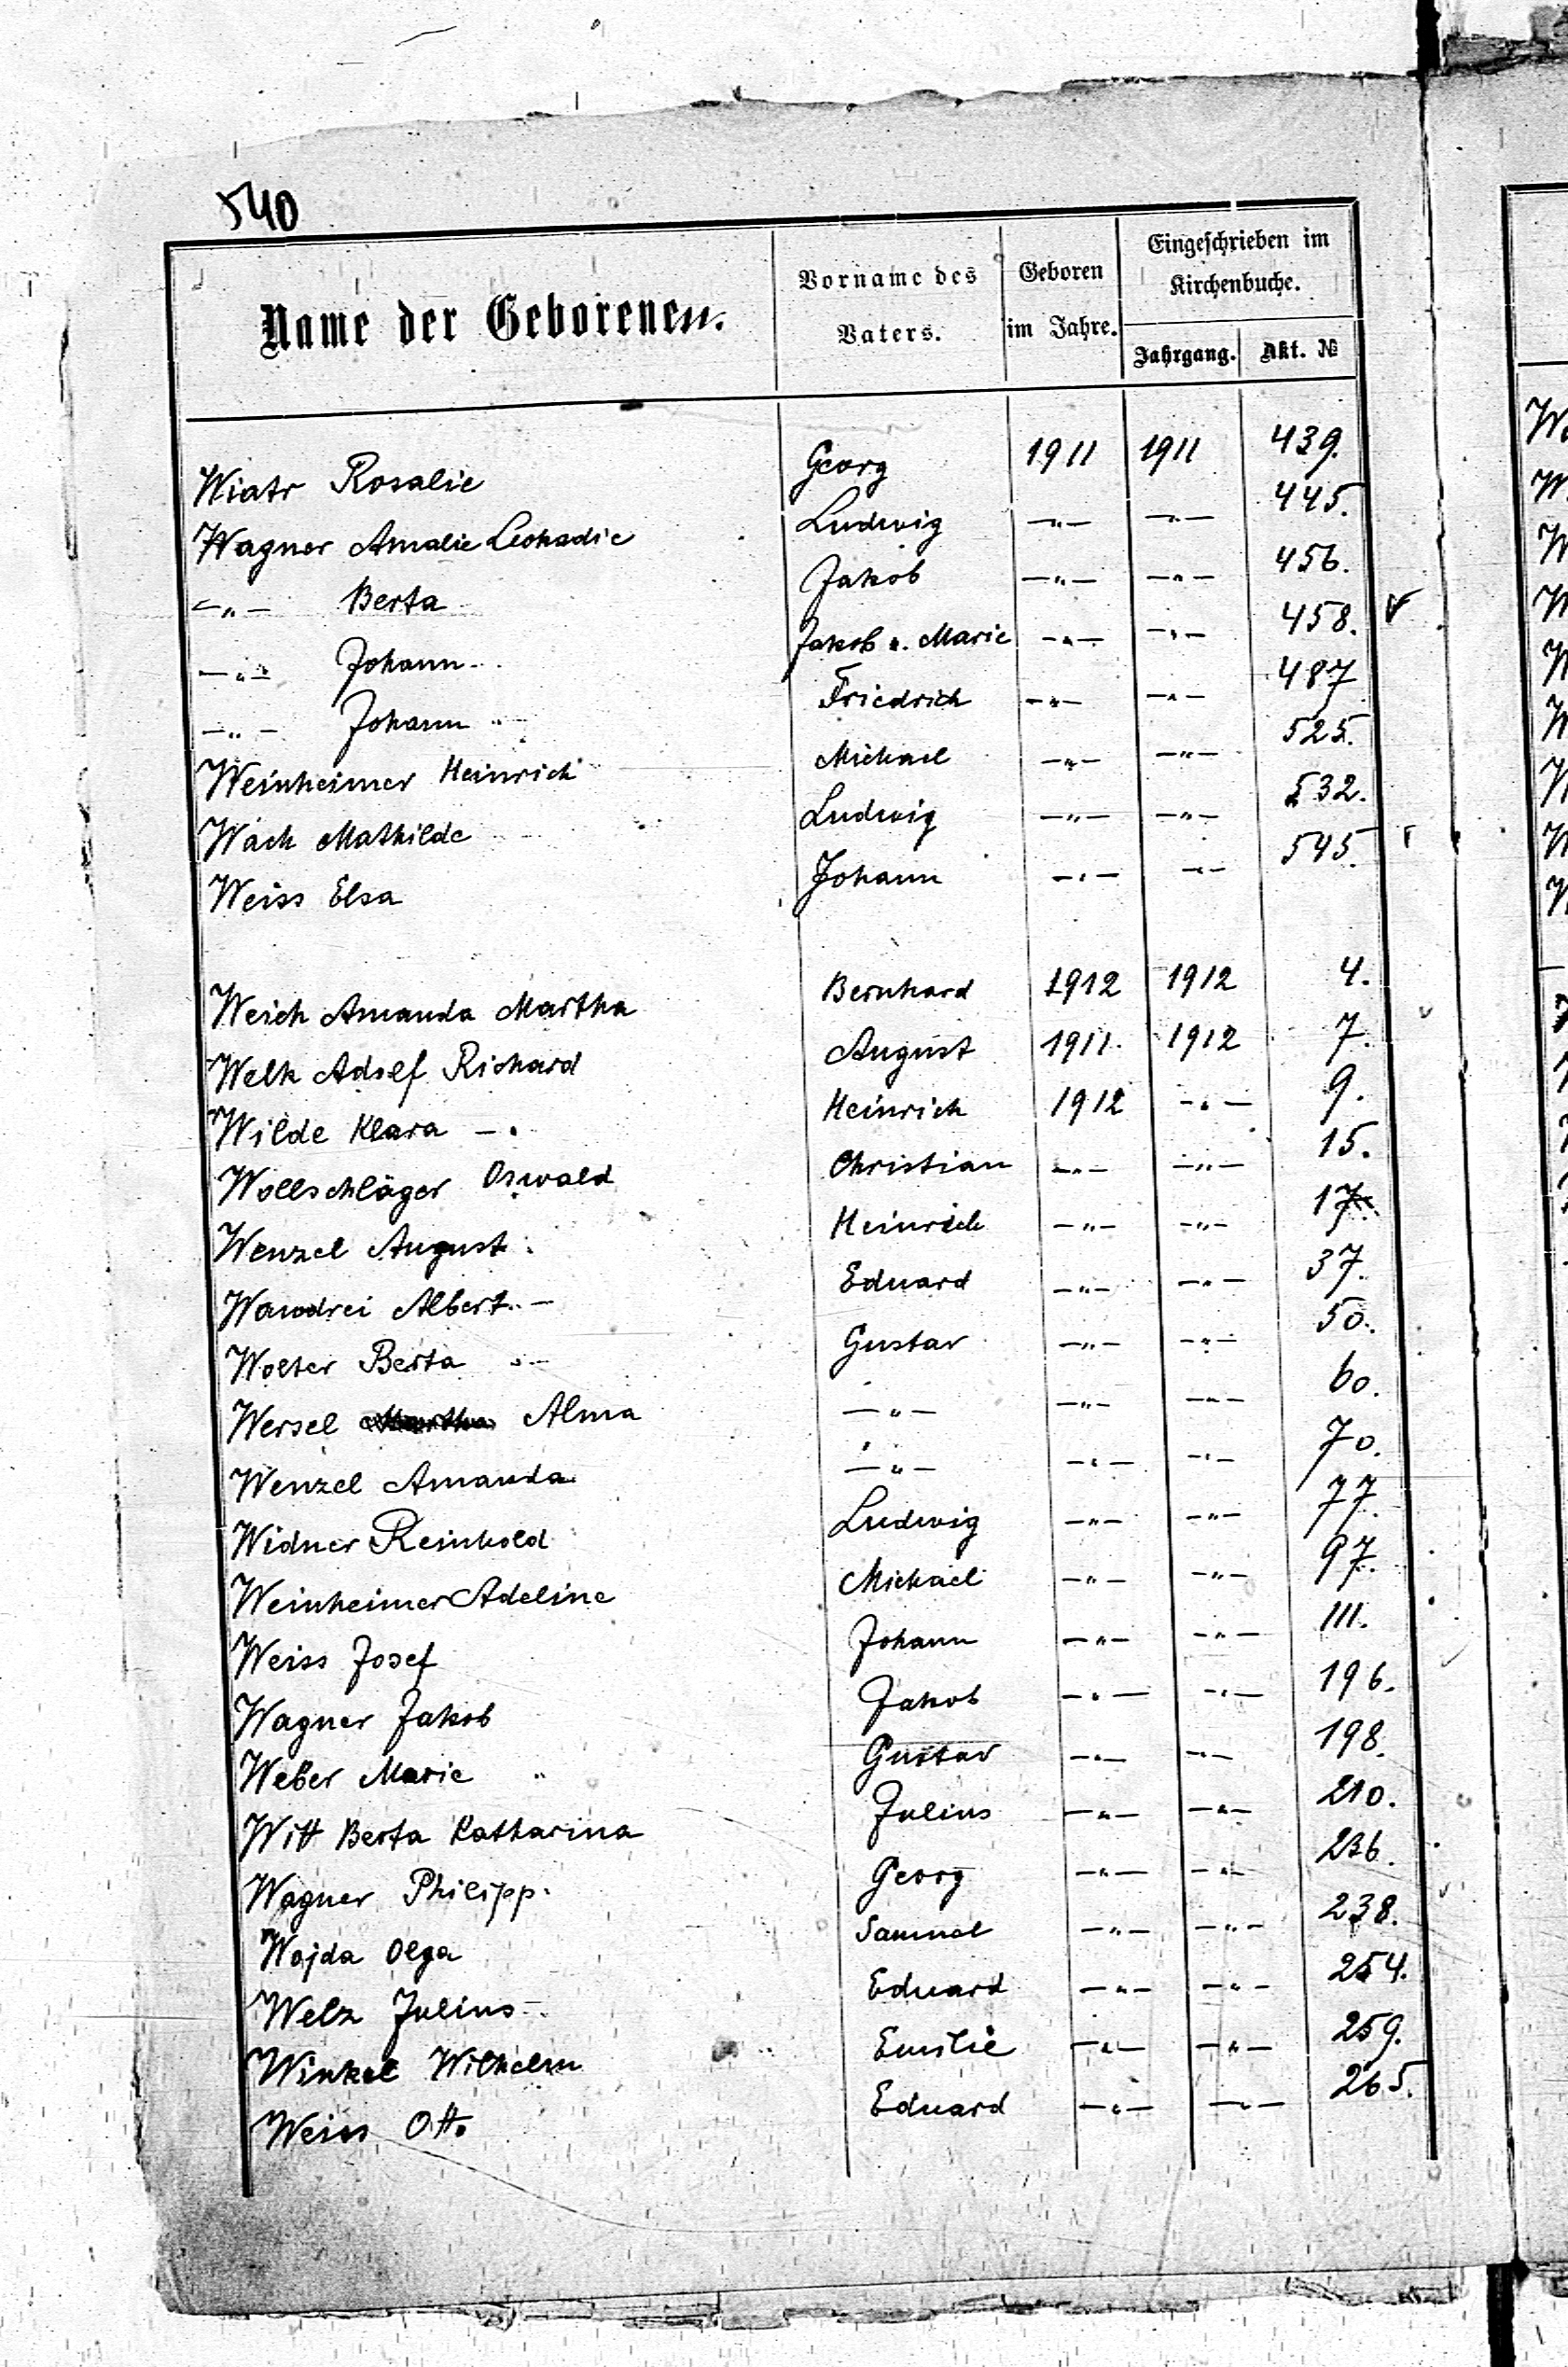 540
Name der Geborenen. Vorname des Vaters. Geboren im Jahre. Eingeschrieben im Kirchenbuche. Jahrgang. Akt. №
Wiatr Rosalie Georg 1911 1911 439.
Wagner Amalie Leokadie Ludwig —"— —"— 445.
—"— Berta Jakob —"— —"— 456.
—"— Johann Jakob u. Marie —"— —"— 458.
—"— Johann Friedrich —"— —"— 487
Weinheimer Heinrich Michael —"— —"— 525.
Wach Mathilde Ludwig —"— —"— 532.
Weiss Elsa Johann —"— —"— 545.
Weich Amanda Martha Bernhard 1912 1912 4.
Welk Adolf Richard August 1911. 1912 7.
Wilde Klara Heinrich 1912 —"— 9.
Wollschläger Oswald Christian —"— —"— 15.
Wenzel August Heinrich —"— —"— 17.
Wawdrei Albert Eduard —"— —"— 37.
Wolter Berta Gustav —"— —"— 50.
Wersel Martha Alma —"— —"— —"— 60.
Wenzel Amanda —"— —"— —"— 70.
Widner Reinhold Ludwig —"— —"— 77.
Weinheimer Adeline Michael —"— —"— 97.
Weiss Josef Johann —"— —"— 111.
Wagner Jakob Jakob —"— —"— 196.
Weber Marie Gustav —"— —"— 198.
Witt Berta Katharina Julius —"— —"— 210.
Wagner Philipp. Georg —"— —"— 236.
Wojda Olga Samuel —"— —"— 238.
Welz Julius Eduard —"— —"— 254.
Winkel Wilhelm Emilie —"— —"— 259.
Weiss Otto Eduard —"— —"— 265.